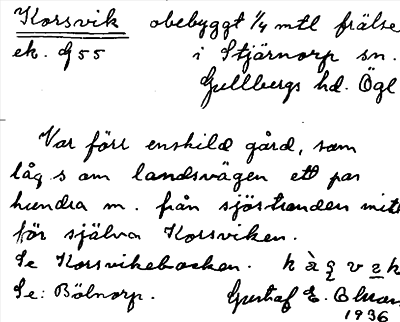 Korsvik obebyggt 1/4 mtl frälse
ek. G 55 i Stjärnorp sn.
Gullbergs hd. Ögl
Var förr enskild gård, som
låg s om landsvägen ett par
hundra m. från sjöstranden mitt
för själva Korsviken.
Se Korsvikebacken.
Se: Bölnorp. Gustaf E.
1936